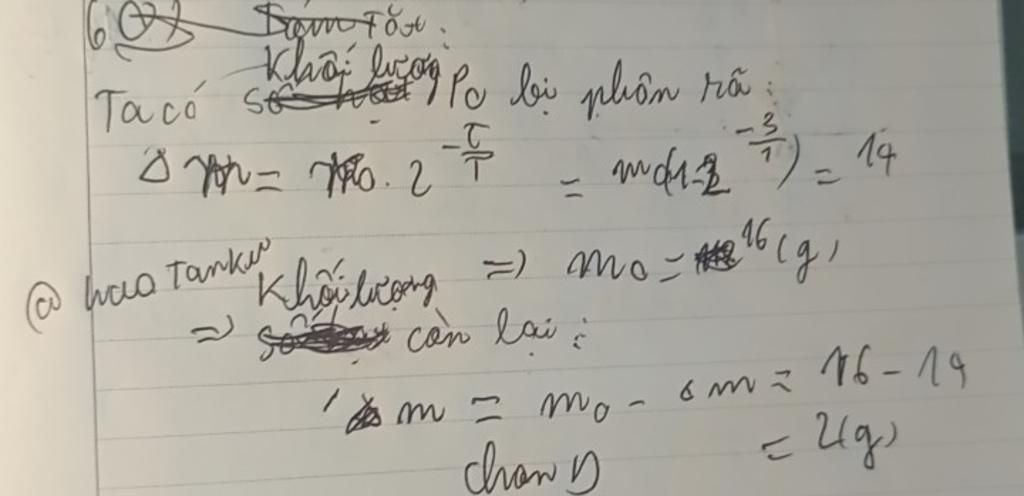 6
Tóm Tắt:
Khối lượng
Ta có Po bị phân rã:
Δm = m₀. 2^(-t/T) = m₀(1-2^(-3/1)) = 14
=> m₀ = 16 (g)
@ hao Tanku
Khối lượng
=> còn lại:
m = m₀ - Δm = 16 - 14
= 2(g)
chọn D